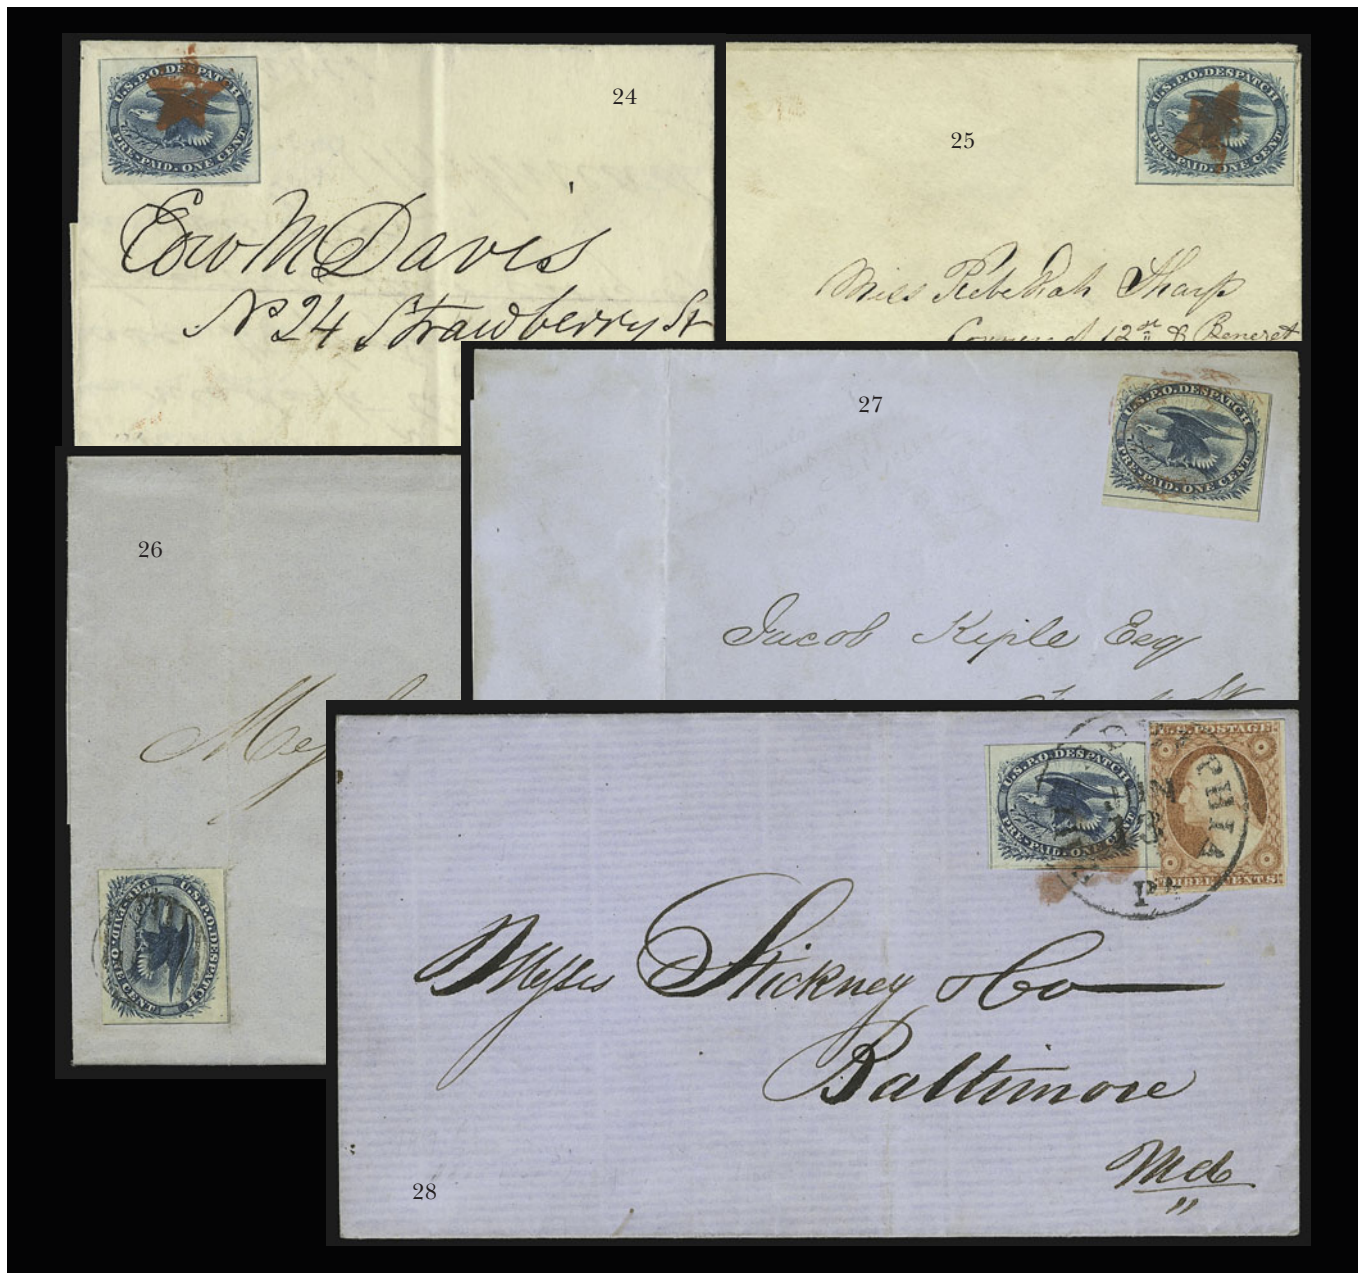 U.S.P.O. DESPATCH
PRE-PAID. ONE CENT
24
Edw M Davis
No 24 Strawberry St
U.S.P.O. DESPATCH
PRE-PAID. ONE CENT
25
Miss Rebekah Sharp
Corner of 12th &
27
U.S.P.O. DESPATCH
PRE-PAID. ONE CENT
Jacob Kiple Esq
26
Mess
U.S.P.O. DESPATCH
PRE-PAID. ONE CENT
U.S.P.O. DESPATCH
PRE-PAID. ONE CENT
U.S. POSTAGE
THREE CENTS
PHIA
13
Pa
Messrs Stickney & Co
Baltimore
Md
28